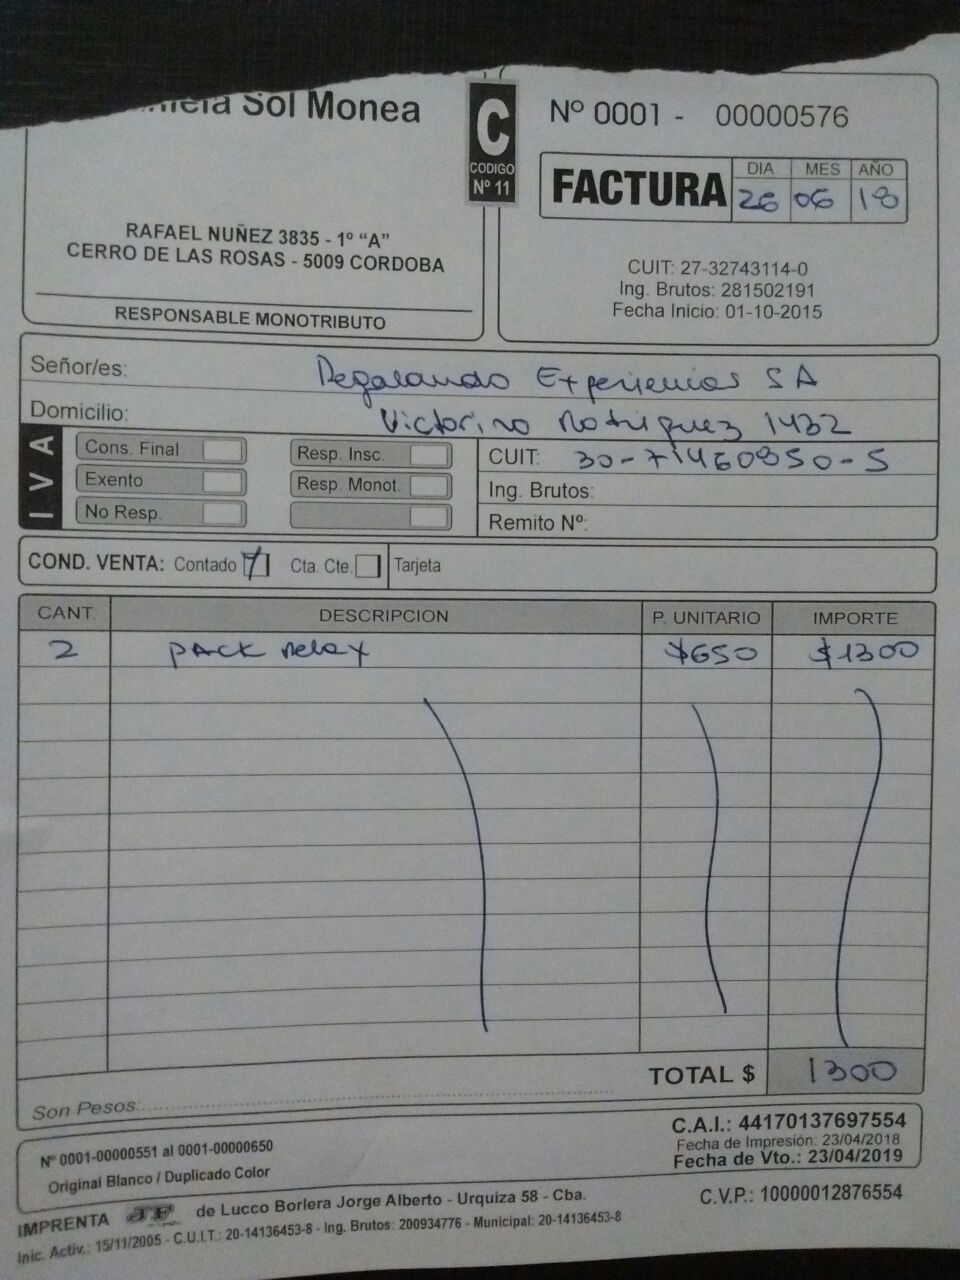 Sol Monea
C
CODIGO
Nº 11
Nº 0001 - 00000576
FACTURA
DIA MES AÑO
26 06 18
RAFAEL NUÑEZ 3835 - 1º “A”
CERRO DE LAS ROSAS - 5009 CORDOBA
RESPONSABLE MONOTRIBUTO
CUIT: 27-32743114-0
Ing. Brutos: 281502191
Fecha Inicio: 01-10-2015
Señor/es: Regalando Experiencias SA
Domicilio: Victorino Rodriguez 1432
IVA
Cons. Final
Exento
No Resp.
Resp. Insc.
Resp. Monot.
CUIT: 30-71460950-5
Ing. Brutos:
Remito Nº:
COND. VENTA: Contado Cta. Cte. Tarjeta
CANT. DESCRIPCION P. UNITARIO IMPORTE
2 pack relax $650 $1300
TOTAL $ 1300
Son Pesos:
Nº 0001-00000551 al 0001-00000650
Original Blanco / Duplicado Color
C.A.I.: 44170137697554
Fecha de Impresión: 23/04/2018
Fecha de Vto.: 23/04/2019
IMPRENTA JF de Lucco Borlera Jorge Alberto - Urquiza 58 - Cba.
C.V.P.: 10000012876554
Inic. Activ.: 15/11/2005 - C.U.I.T.: 20-14136453-8 - Ing. Brutos: 200934776 - Municipal: 20-14136453-8